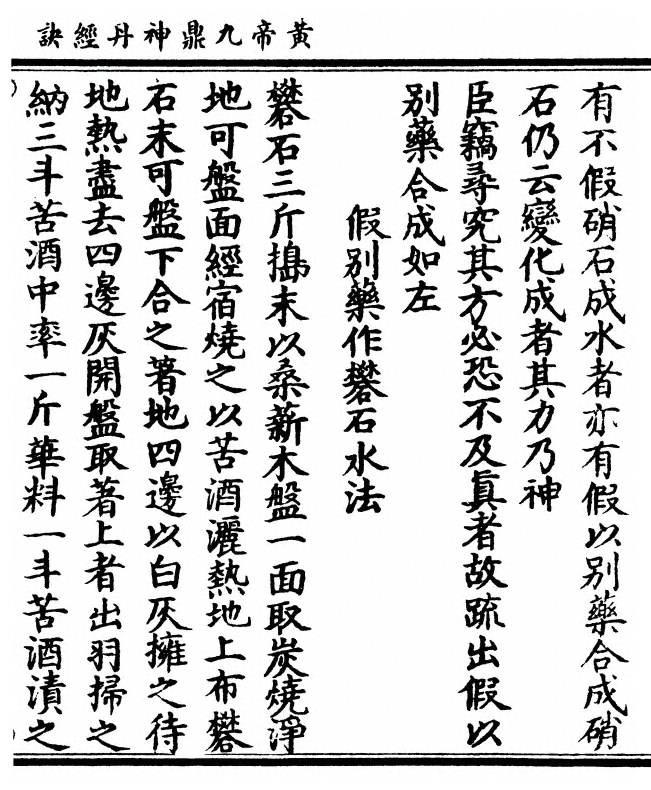 黃帝九鼎神丹經訣
有不假硝石成水者亦有假以别藥合成硝
石仍云變化成者其力乃神
臣竊尋究其方必恐不及眞者故疏出假以
别藥合成如左
假别藥作礬石水法
礬石三斤搗末以桑薪木盤一面取炭燒淨
地可盤面經宿燒之以苦酒灑熱地上布礬
石末可盤下合之著地四邊以白灰擁之待
地熱盡去四邊灰開盤取著上者出羽掃之
納三斗苦酒中率一斤華料一斗苦酒漬之